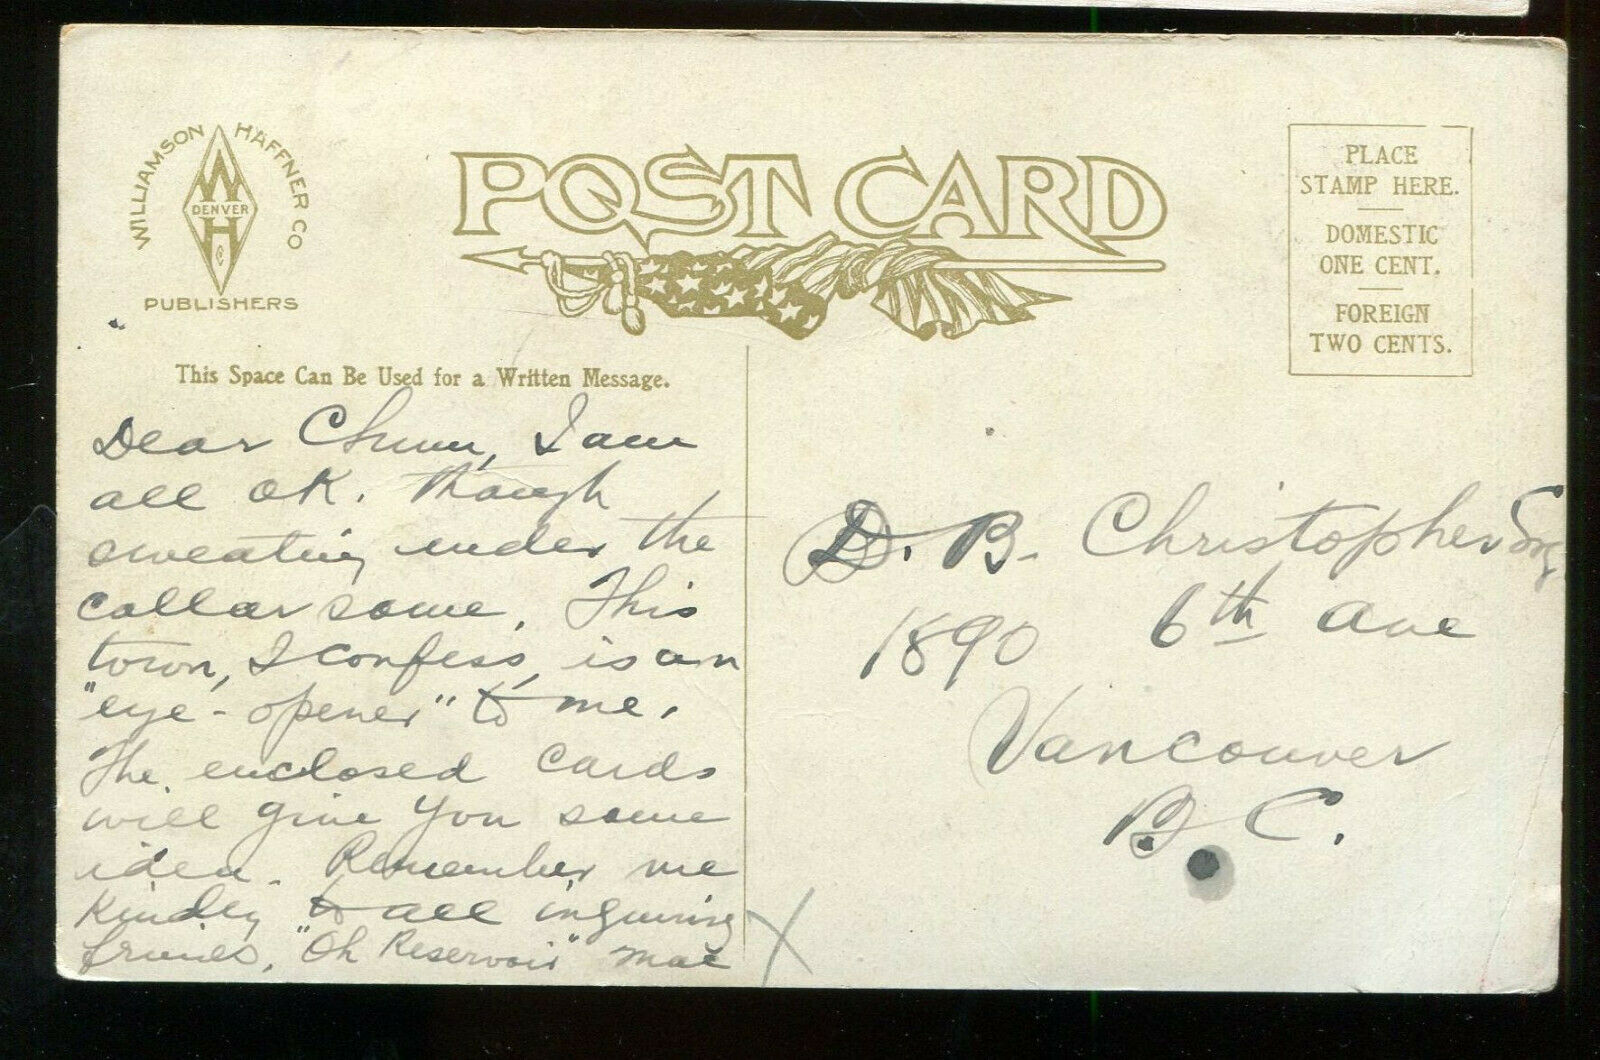 WILLIAMSON HAFFNER CO
W
DENVER
H
C
PUBLISHERS
POST CARD
PLACE
STAMP HERE.
DOMESTIC
ONE CENT.
FOREIGN
TWO CENTS.
This Space Can Be Used for a Written Message.
Dear Chum, I am
all OK. though
sweating under the
collar some. This
town, I confess, is an
"eye-opener" to me.
The enclosed cards
will give you some
idea. Remember me
kindly to all inquiring
friends. "Oh Reservoir" Mac
D. B. Christopher Esq
1890 6th Ave
Vancouver
B. C.